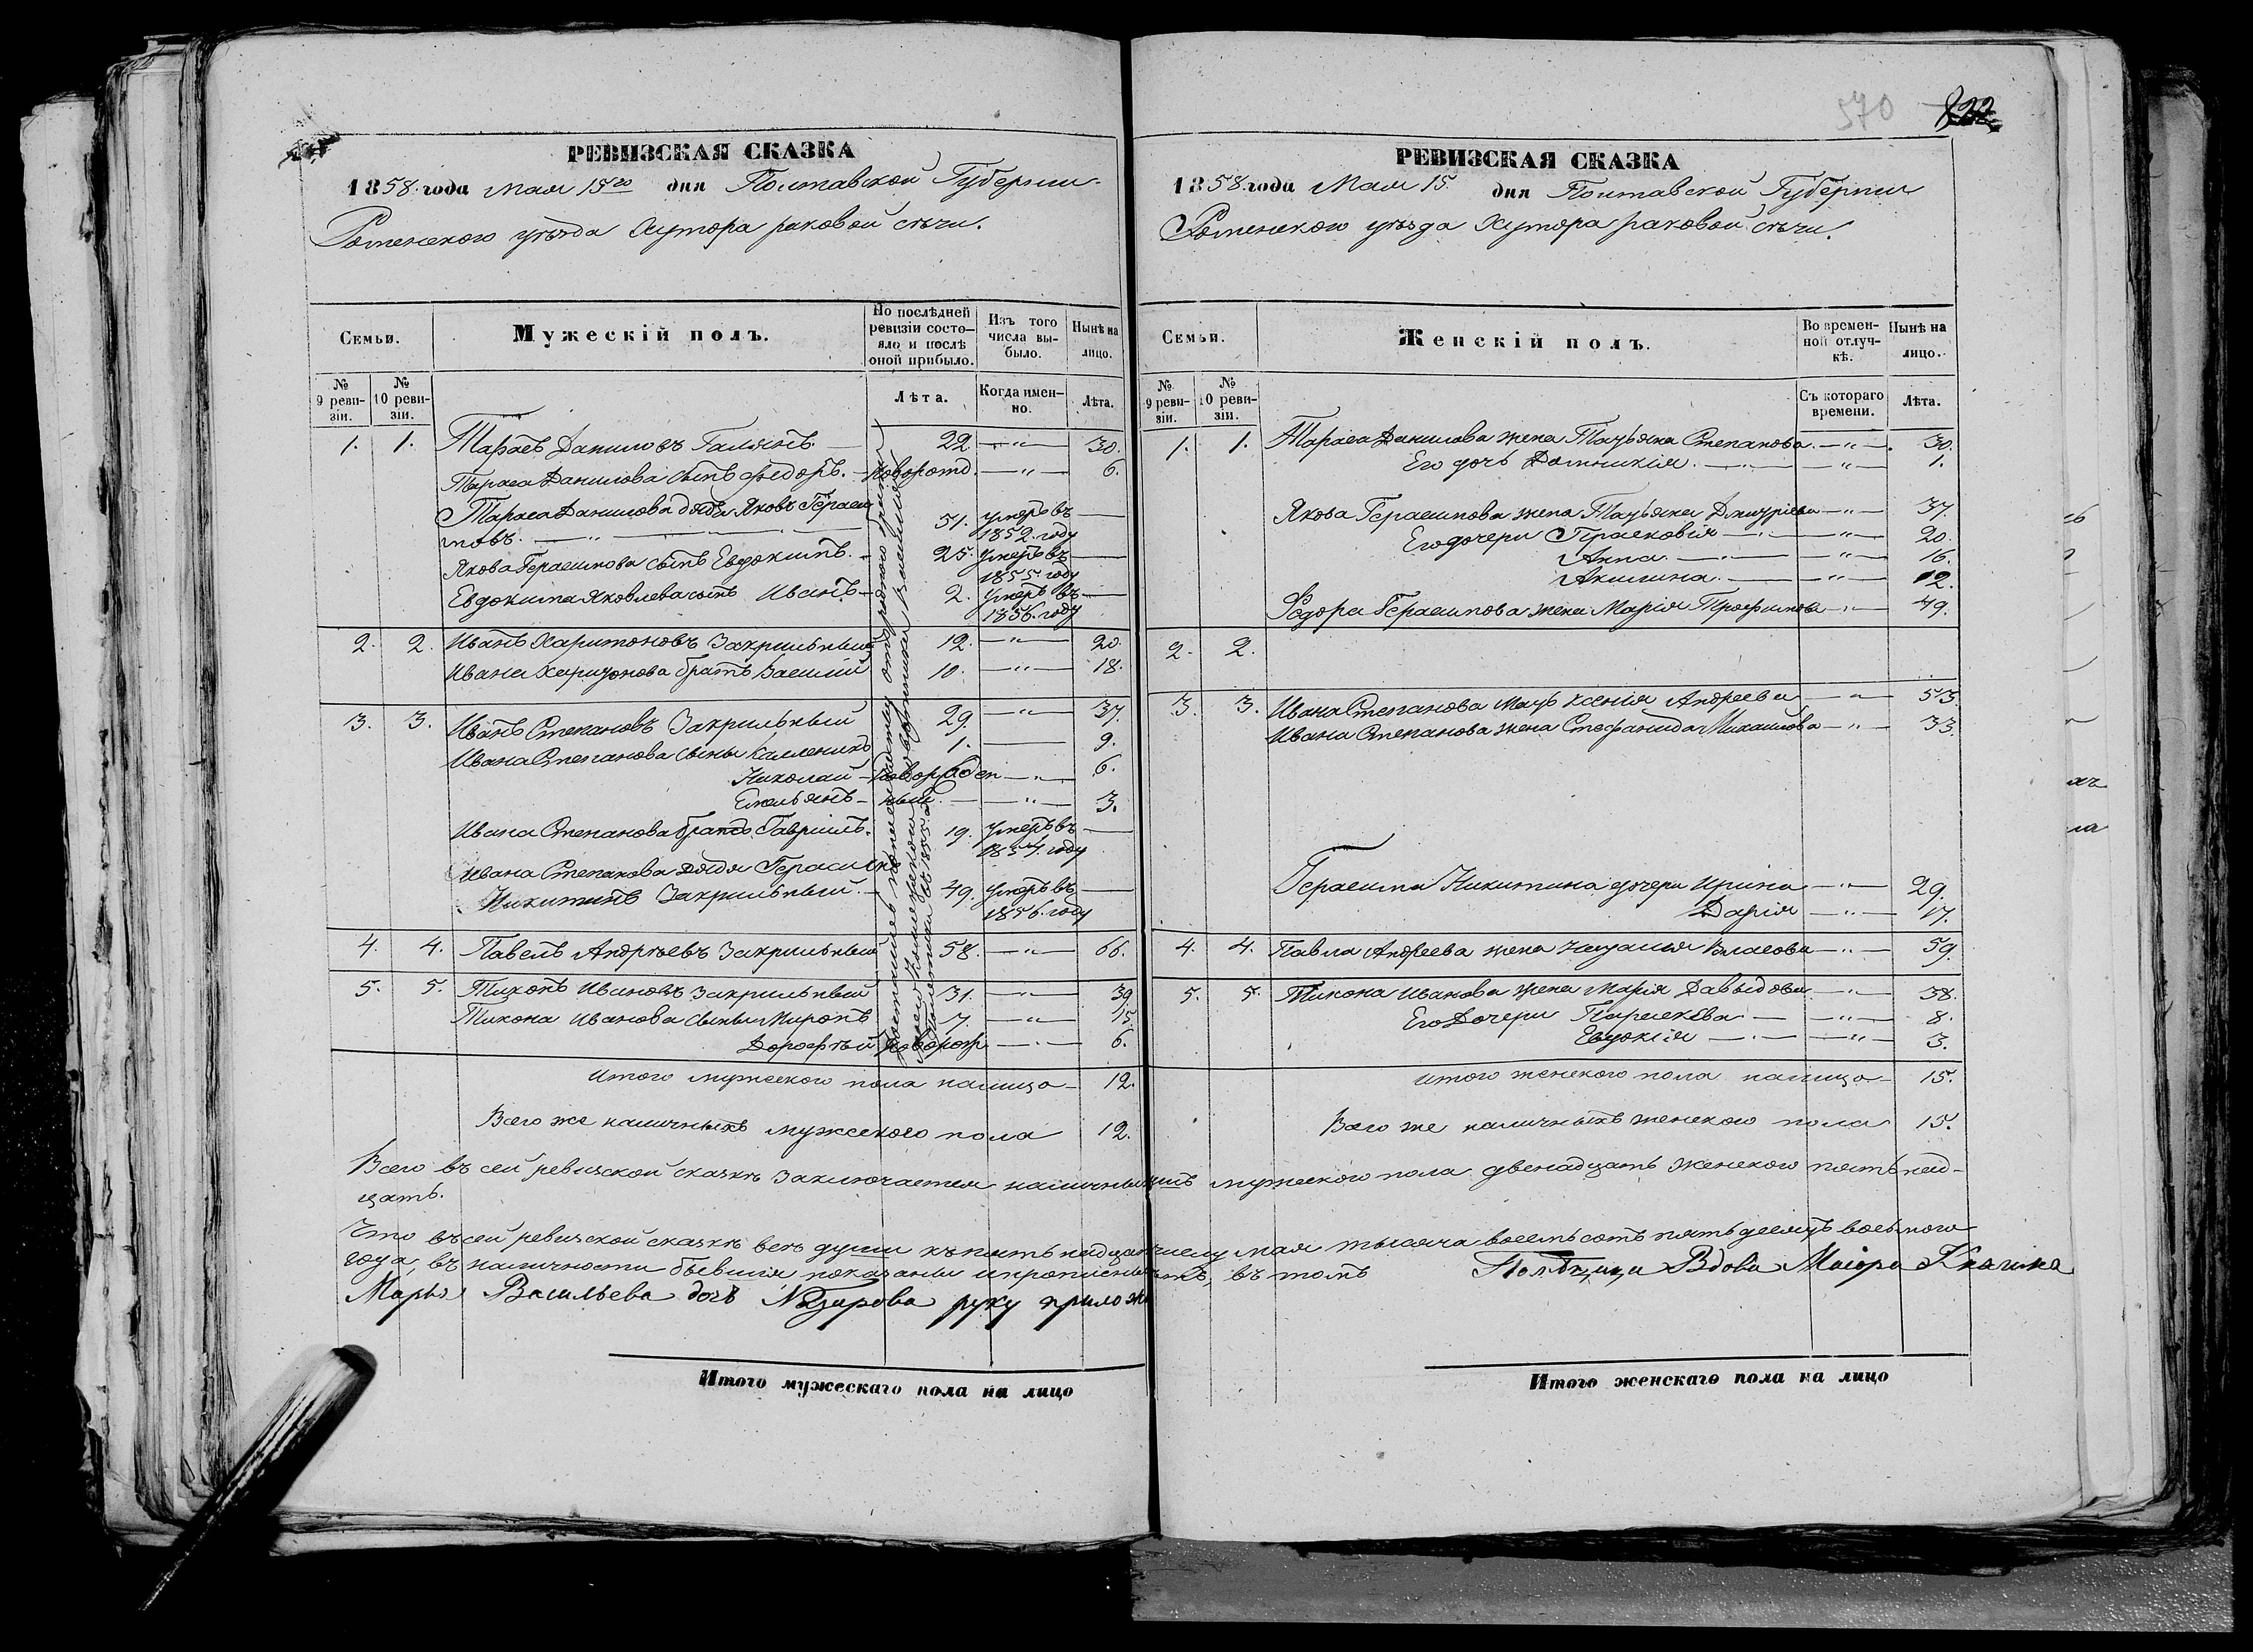 РЕВИЗСКАЯ СКАЗКА
1858 года Мая 15го дня Полтавской Губернии
Роменского уѣзда Хутора раковой сѣчи.
Семьи.
Мужескій полъ.
По послѣдней ревизіи состояло и послѣ оной прибыло.
Изъ того числа выбыло.
Нынѣ на лицо.
№ 9 ревизіи.
№ 10 ревизіи.
Лѣта.
Когда именно.
Лѣта.
1. 1. Тарасъ Даниловъ 22 —"— 30.
Тараса Данилова сынъ Федоръ. — новорожд. —"— 6.
Тараса Данилова дядя Яковъ Гераси
мовъ. — 51. умеръ въ 1852. году —
Якова Герасимова сынъ Евдокимъ. — 25. умеръ въ 1855. году —
Евдокима Яковлева сынъ Иванъ — 2. умеръ въ 1856. году —
2. 2. Иванъ Харитоновъ Закрильный 12. —"— 20.
Ивана Харитонова братъ Василий 10. —"— 18.
3. 3. Иванъ Степановъ Закрильный 29. —"— 37.
Ивана Степанова сыны Каленикъ 1. — 9.
Николай — новорожден —"— 6.
Емельянъ — ные. —"— 3.
Ивана Степанова братъ Гавриилъ. 19. умеръ въ 1854. году —
Ивана Степанова дядя Герасимъ
Никитинъ Закрильный. — 49. умеръ въ 1856. году —
4. 4. Павелъ Андреевъ Закрильный 58. —"— 66.
5. 5. Тихонъ Ивановъ Закрильный 31. —"— 39.
Тихона Иванова сыны Миронъ 7. —"— 15.
Дорофѣй новорож —"— 6.
Итого мужеского пола налицо — 12.
Всего же наличныхъ мужеского пола 12.
РЕВИЗСКАЯ СКАЗКА
1858 года Мая 15. дня Полтавской Губернии
Роменского уѣзда Хутора раковой сѣчи.
570
822
Семьи.
Женскій полъ.
Во временной отлучкѣ.
Нынѣ на лицо.
№ 9 ревизіи.
№ 10 ревизіи.
Съ котораго времени.
Лѣта.
1. 1. Тараса Данилова жена Татьяна Степанова. —"— 30.
Его дочь Домникія. —"— 1.
Якова Герасимова жена Татьяна Дмитріева —"— 37.
Его дочери Прасковія —"— 20.
Анна —"— 16.
Акилина. —"— 12.
Федора Герасимова жена Марія Трофимова —"— 49.
2. 2.
3. 3. Ивана Степанова мать Ксенія Андреева —"— 53.
Ивана Степанова жена Стефанида Михаилова —"— 33.
Герасима Никитина дочери Ирина —"— 29.
Дарія —"— 17.
4. 4. Павла Андреева жена Наталья Власова —"— 59.
5. 5. Тихона Иванова жена Марія Давыдова —"— 38.
Его Дочери Парасковa —"— 8.
Евдокія —"— 3.
Итого женского пола налицо — 15.
Всего же наличныхъ женского пола 15.
Всего въ сей ревизской сказкѣ заключается наличныхъ мужеского пола двенадцать женского пятьнад-
цать.
Что въ сей ревизской сказкѣ всѣ души къ пятьнадцатому числу мая тысяча восемьсотъ пятьдесятъ восьмого
года, въ наличности бывшія показаны и прописныхъ нѣтъ, въ томъ Вдова Маіора Княгиня
Марья Васильева дочь руку приложи
Итого мужескаго пола на лицо
Итого женскаго пола на лицо